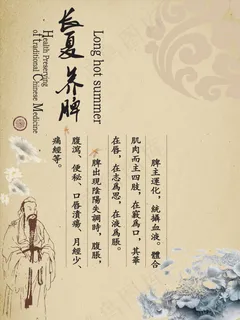 长夏养脾
Long hot summer
Health Preserving
of traditional Chinese Medicine
脾主運化,統攝血液。體合
肌肉而主四肢,在竅爲口,其華
在唇,在志爲思,在液爲脹。
脾出現陰陽失調時,腹脹,
腹瀉、便秘、口唇潰瘍、月經少、
痛經等。